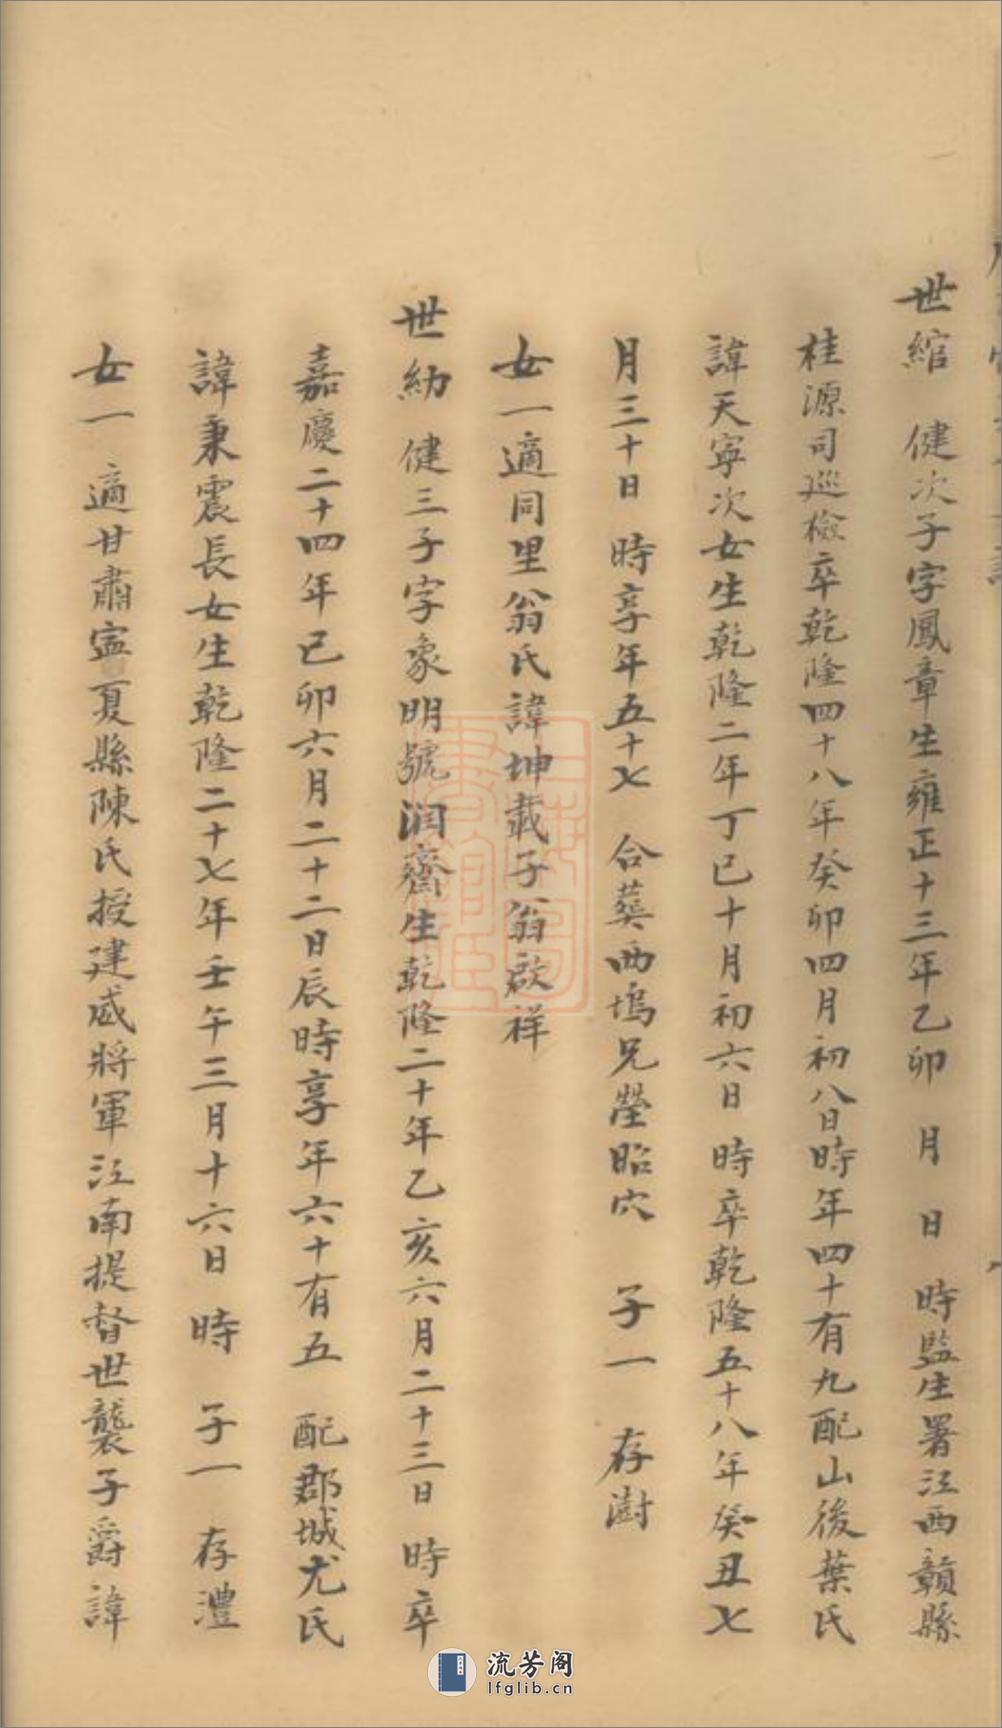 世綰　健次子字鳳章生雍正十三年乙卯　月　日　時監生署江西贛縣
桂源司巡檢卒乾隆四十八年癸卯四月初八日時年四十有九配山後葉氏
諱天寧次女生乾隆二年丁巳十月初六日　時卒乾隆五十八年癸丑七
月三十日　時享年五十七　合葬西塢兄塋昭穴　子一　存澍
女一適同里翁氏諱坤載子翁啟祥
世紡　健三子字象明號润齋生乾隆二十年乙亥六月二十三日　時卒
嘉慶二十四年己卯六月二十二日辰時享年六十有五　配郡城尤氏
諱秉震長女生乾隆二十七年壬午三月十六日　時　子一　存澧
女一　適甘肅寧夏縣陳氏授建威將軍江南提督世襲子爵諱
流芳阁
lfglib.cn